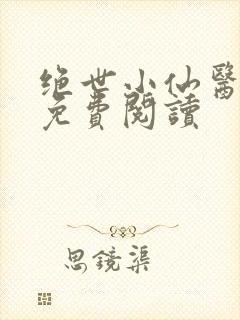 绝世小仙醫
免費閱讀
思鏡渠